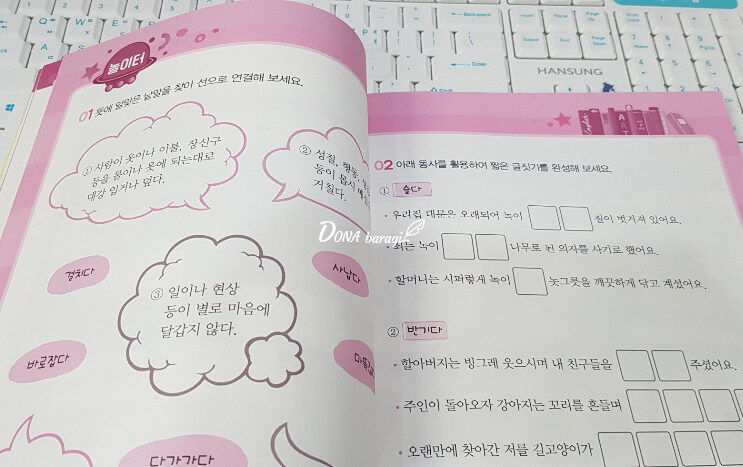 놀이터
01 뜻에 알맞은 낱말을 찾아 선으로 연결해 보세요.
① 사람이 옷이나 이불, 장신구
등을 몸이나 옷에 되는대로
대강 입거나 덮다.
② 성질, 행동,
등이 몹시
거칠다.
걸치다
사납다
③ 일이나 현상
등이 별로 마음에
달갑지 않다.
바로잡다
다가가다
DONA baragi
HANSUNG
Back space
Enter
02 아래 동사를 활용하여 짧은 글짓기를 완성해 보세요.
① 슬다
• 우리집 대문은 오래되어 녹이 칠이 벗겨져 있어요.
• 쇠는 녹이 나무로 된 의자를 사기로 했어요.
• 할머니는 시퍼렇게 녹이 놋그릇을 깨끗하게 닦고 계셨어요.
② 반기다
• 할아버지는 빙그레 웃으시며 내 친구들을 주셨어요.
• 주인이 돌아오자 강아지는 꼬리를 흔들며
• 오랜만에 찾아간 저를 길고양이가